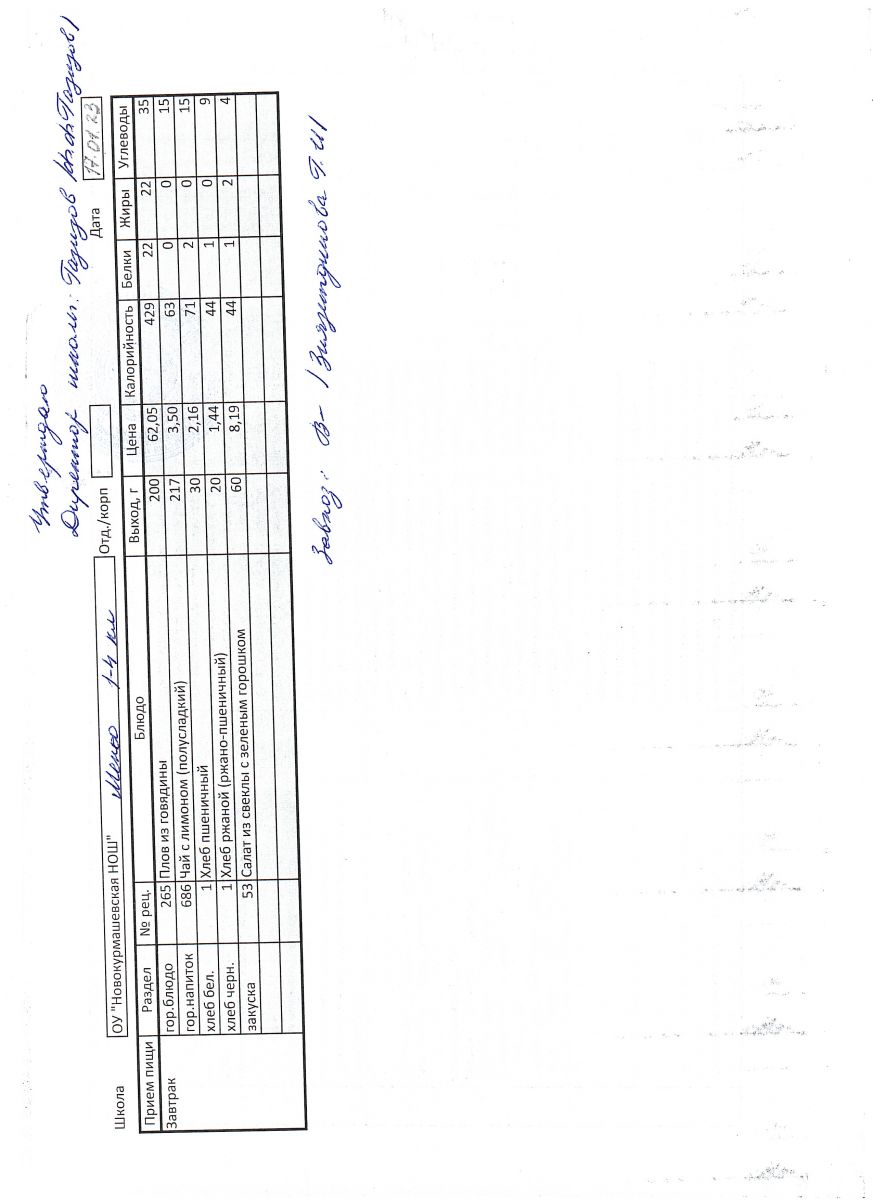 Утверждаю
Директор школы: Газизов Газизов/
Школа ОУ "Новокурмашевская НОШ" Меню 1-4 кл Отд./корп Дата 17.01.23
Прием пищи Раздел № рец. Блюдо Выход, г Цена Калорийность Белки Жиры Углеводы
Завтрак гор.блюдо 265 Плов из говядины 200 62,05 429 22 22 35
гор.напиток 686 Чай с лимоном (полусладкий) 217 3,50 63 0 0 15
хлеб бел. 1 Хлеб пшеничный 30 2,16 71 2 0 15
хлеб черн. 1 Хлеб ржаной (ржано-пшеничный) 20 1,44 44 1 0 9
закуска 53 Салат из свеклы с зеленым горошком 60 8,19 44 1 2 4
Завхоз: / Г.И/